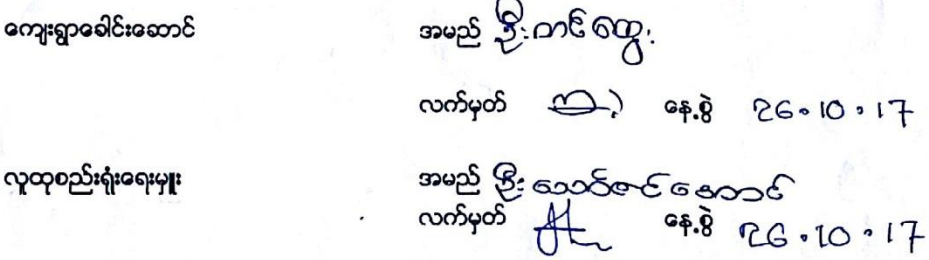 ကျေးရွာခေါင်းဆောင် အမည် ဦးတင်ထွေး
လက်မှတ် နေ့စွဲ 26.10.17
လူထုစည်းရုံးရေးမှူး အမည် ဦးသော်ဇင်အောင်
လက်မှတ် နေ့စွဲ 26.10.17